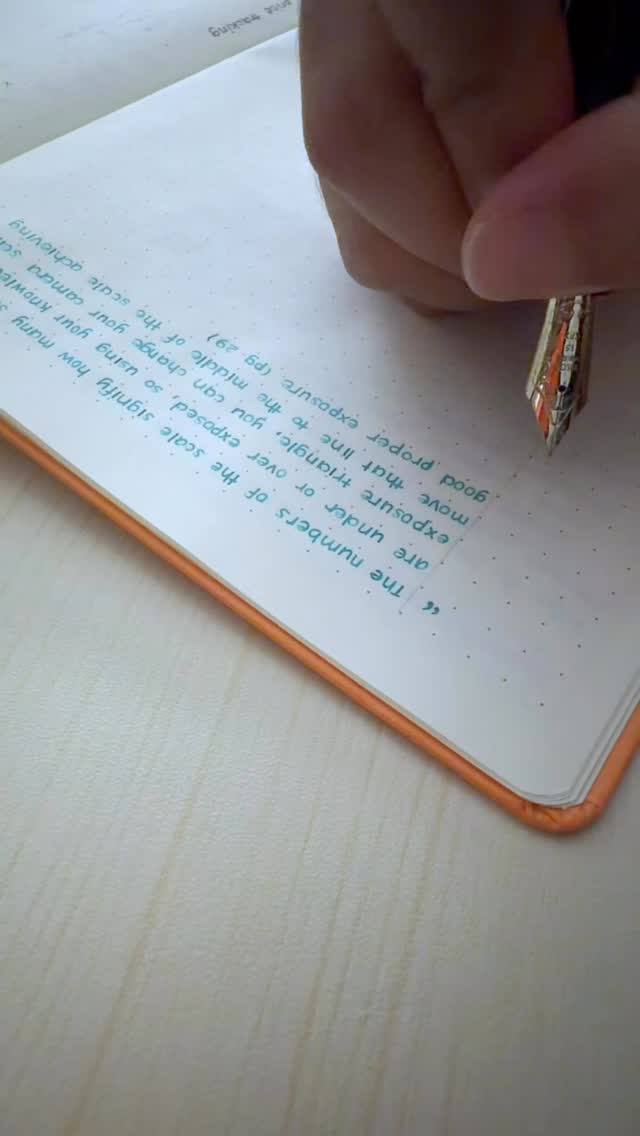 " The numbers of the scale signify how many
are under or over exposed, so using your
exposure triangle, you can change your camera
move that line to the middle of the scale achieving
good proper exposure (pg 29)
tracking